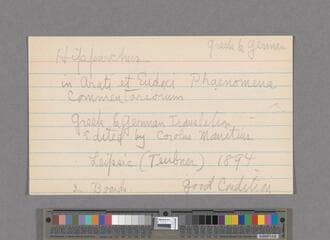 Greek & German
Hipparchus
in Arati et Eudoxi Phaenomena
Commentariorum
Greek & German Translation
Edited by Carolus Manitius
Leipsic (Teubner) 1894
in Boards Good Condition